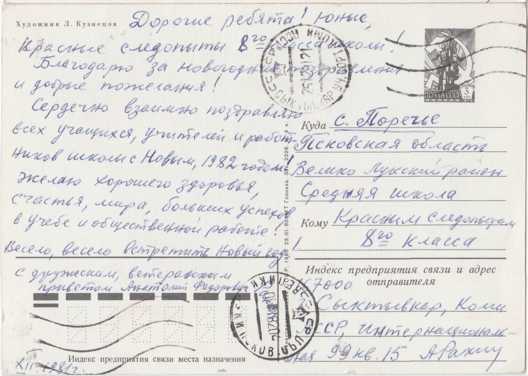 Художник Л. Кузнецов
Дорогие ребята! Юные,
Красные следопыты 8го класса школы!
Благодарю за новогодние поздравления
и добрые пожелания!
Сердечно взаимно поздравляю
всех учащихся, учителей и работ-
ников школы с Новым, 1982 годом!
Желаю хорошего здоровья,
счастья, мира, больших успехов
в учебе и общественной работе!
Весело, весело встретить Новый год
с дружеским, ветеранским
приветом Анатолий Федорович
XII-1981г.
Куда с. Поречье
Псковская область
Велико Лукский район
Средняя школа
Кому Красным следопытам
8го класса
Индекс предприятия связи и адрес
отправителя
167000
Сыктывкар, Коми
АССР, Интернациональ-
ная 99 кв. 15
Индекс предприятия связи места назначения